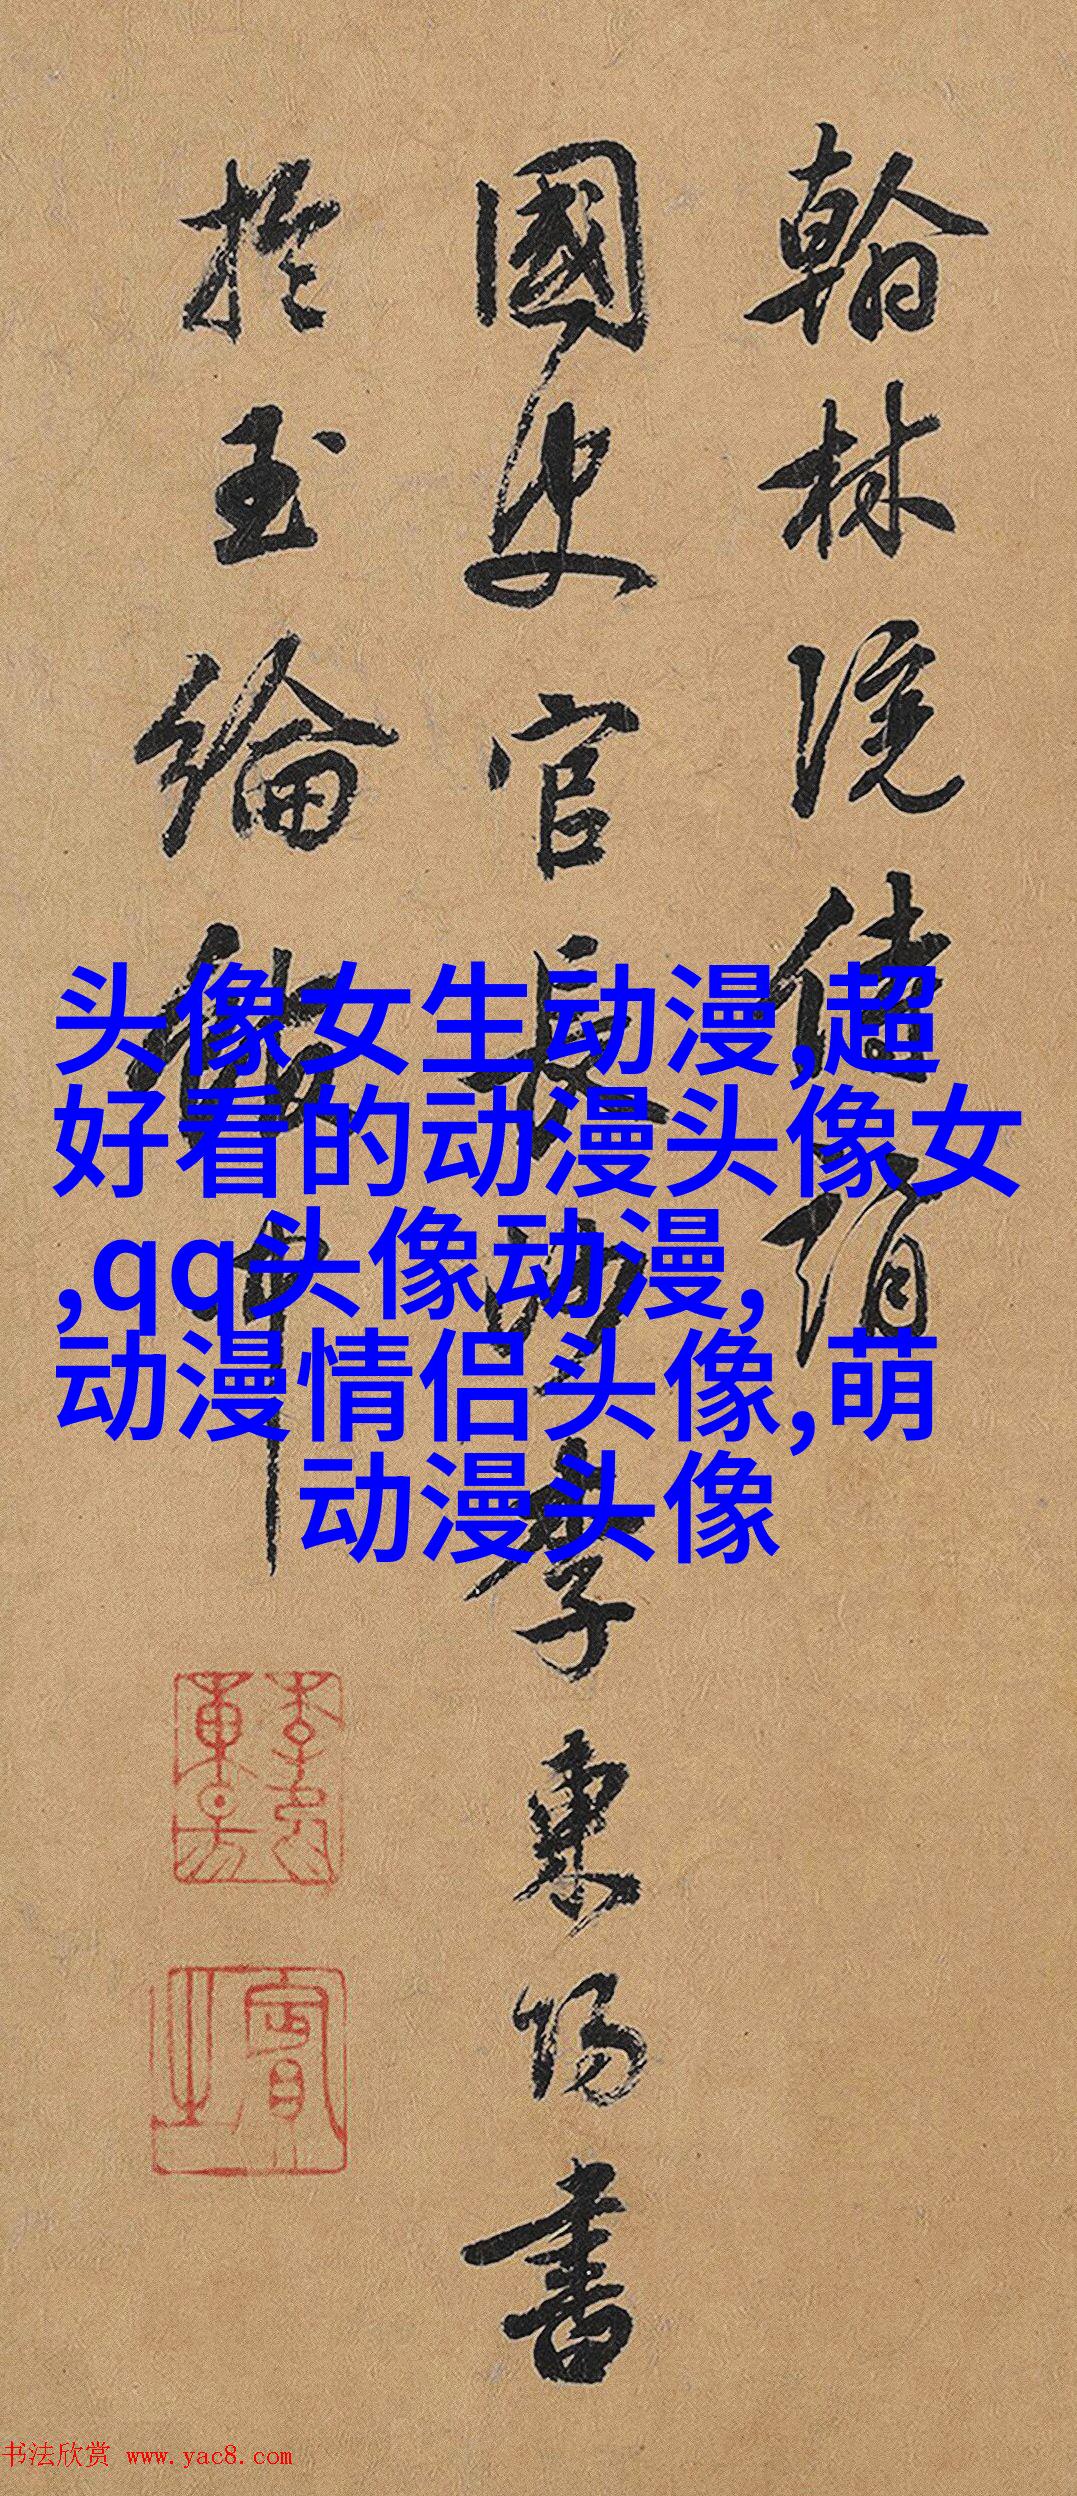 翰林院侍講
國史官長沙李東陽書
於玉綸
中
头像女生动漫,超
好看的动漫头像女
,qq头像动漫,
动漫情侣头像,萌
动漫头像
书法欣赏 www.yac8.com